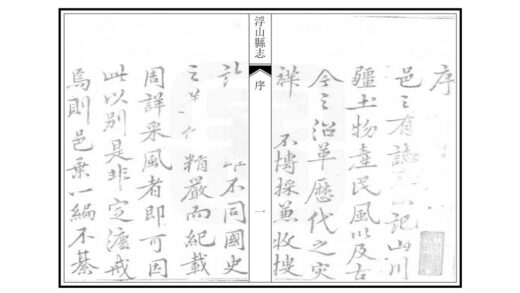 序
邑之有誌　以記山川
疆土物產民風以及古
今之沿革歷代之灾
祥　不博採蒐收搜
浮山縣志
序
一
不同國史
之　　精嚴而紀載
周詳采風者即可因
此以別是非定法戒
焉則邑乘一編不綦